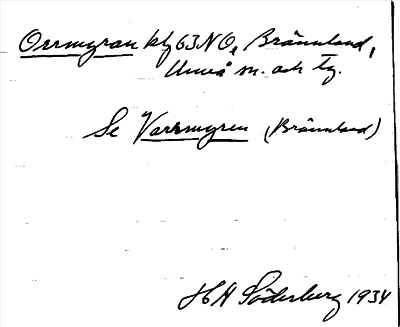 Orrmyran kbf 63NO, Brännland,
Umeå sn. och tg.
Se Vorrmyren (Brännland)
HH Söderberg 1934